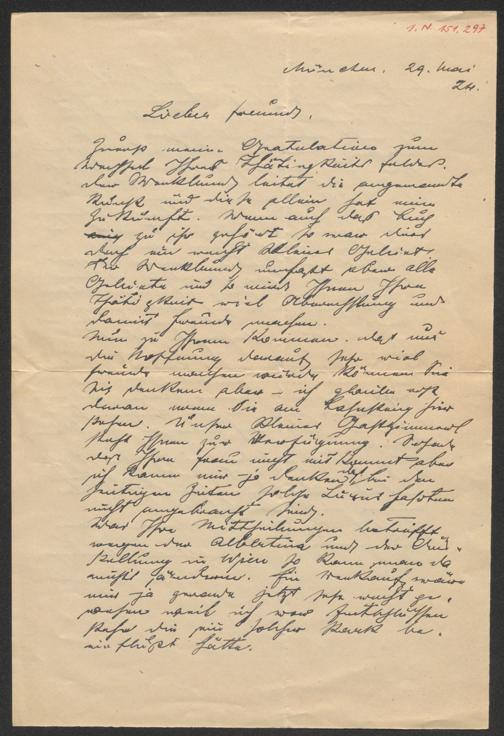 I.N. 151.297
München. 29. Mai
24.
Lieber Freund,
Zuerst meine Gratulation zum
Wechsel Ihres Thätigkeits feldes.
Der Werkbund leitet die angewandte
Kunst und diese allein hat eine
Zukunft. Wenn auch das Buch
zu ihr gehört so war dies
doch ein recht kleines Gebiet.
Der Werkbund umfasst aber alle
Gebiete und so wird Ihnen Ihre
Thätigkeit viel Abwechslung und
damit Freude machen.
Nun zu Ihrem Kommen. Das uns
die Hoffnung darauf sehr viel
Freude machen würde können Sie
sich denken aber – ich glaube erst
daran wenn Sie am Bahnsteig hier
stehen. Unser kleines Gastzimmerl
steht Ihnen zur Verfügung. Schade
das Ihre Frau nicht mitkommt aber
ich kann mir ja denken das bei den
heutigen Zeiten solche Luxus fahrten
nicht angebracht sind.
Was Ihre Mittheilungen betrifft
wegen der Albertina und der Aus-
stellung in Wien so kann man da
nichts ändern. Ein Verkauf wäre
mir ja gerade jetzt sehr recht ge-
wesen weil ich vor Entschlüssen
stehe die ein solcher stark be-
einflußt hätte.